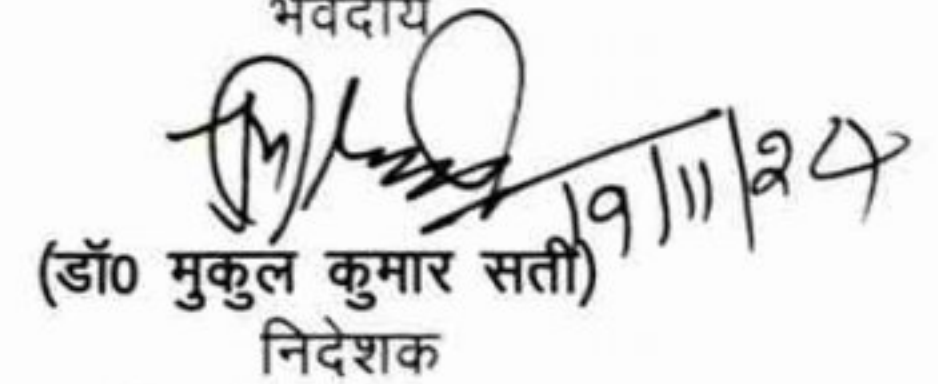 भवदीय
19/11/24
(डॉ0 मुकुल कुमार सती)
निदेशक